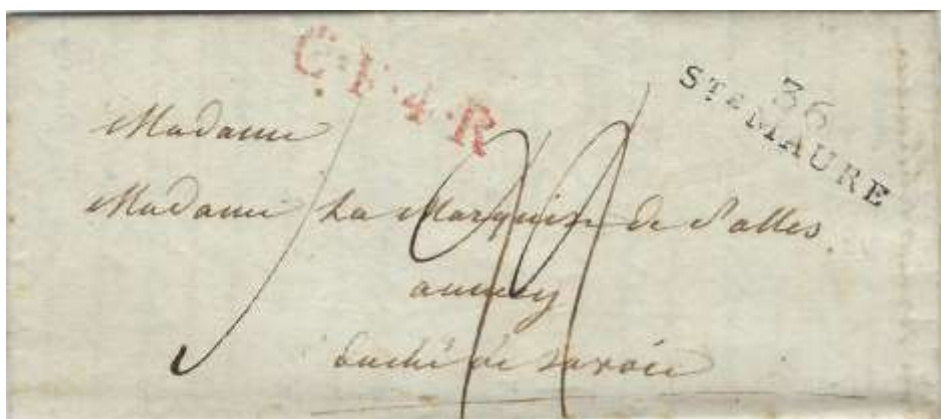 C.F.4.R
36
STE MAURE
Madame
Madame La Marquise de Salles.
annecy
duché de savoie